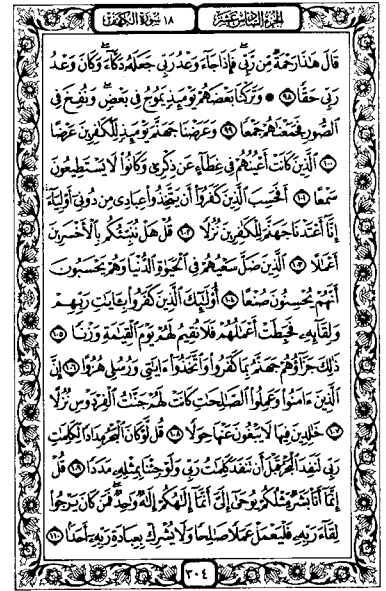 الجزء السادس عشر ١٨ سورة الكهف
قَالَ هَٰذَا رَحْمَةٌ مِّن رَّبِّي ۖ فَإِذَا جَآءَ وَعْدُ رَبِّي جَعَلَهُۥ دَكَّآءَ ۖ وَكَانَ وَعْدُ
رَبِّي حَقًّا ٩٨ ۞ وَتَرَكْنَا بَعْضَهُمْ يَوْمَئِذٍ يَمُوجُ فِي بَعْضٍ ۖ وَنُفِخَ فِي
ٱلصُّورِ فَجَمَعْنَٰهُمْ جَمْعًا ٩٩ وَعَرَضْنَا جَهَنَّمَ يَوْمَئِذٍ لِّلْكَٰفِرِينَ عَرْضًا
١٠٠ ٱلَّذِينَ كَانَتْ أَعْيُنُهُمْ فِي غِطَآءٍ عَن ذِكْرِي وَكَانُوا۟ لَا يَسْتَطِيعُونَ
سَمْعًا ١٠١ أَفَحَسِبَ ٱلَّذِينَ كَفَرُوٓا۟ أَن يَتَّخِذُوا۟ عِبَادِي مِن دُونِيٓ أَوْلِيَآءَ ۚ
إِنَّآ أَعْتَدْنَا جَهَنَّمَ لِلْكَٰفِرِينَ نُزُلًا ١٠٢ قُلْ هَلْ نُنَبِّئُكُم بِٱلْأَخْسَرِينَ
أَعْمَٰلًا ١٠٣ ٱلَّذِينَ ضَلَّ سَعْيُهُمْ فِي ٱلْحَيَوٰةِ ٱلدُّنْيَا وَهُمْ يَحْسَبُونَ
أَنَّهُمْ يُحْسِنُونَ صُنْعًا ١٠٤ أُو۟لَٰٓئِكَ ٱلَّذِينَ كَفَرُوا۟ بِـَٔايَٰتِ رَبِّهِمْ
وَلِقَآئِهِۦ فَحَبِطَتْ أَعْمَٰلُهُمْ فَلَا نُقِيمُ لَهُمْ يَوْمَ ٱلْقِيَٰمَةِ وَزْنًا ١٠٥
ذَٰلِكَ جَزَآؤُهُمْ جَهَنَّمُ بِمَا كَفَرُوا۟ وَٱتَّخَذُوٓا۟ ءَايَٰتِي وَرُسُلِي هُزُوًا ١٠٦ إِنَّ
ٱلَّذِينَ ءَامَنُوا۟ وَعَمِلُوا۟ ٱلصَّٰلِحَٰتِ كَانَتْ لَهُمْ جَنَّٰتُ ٱلْفِرْدَوْسِ نُزُلًا
١٠٧ خَٰلِدِينَ فِيهَا لَا يَبْغُونَ عَنْهَا حِوَلًا ١٠٨ قُل لَّوْ كَانَ ٱلْبَحْرُ مِدَادًا لِّكَلِمَٰتِ
رَبِّي لَنَفِدَ ٱلْبَحْرُ قَبْلَ أَن تَنفَدَ كَلِمَٰتُ رَبِّي وَلَوْ جِئْنَا بِمِثْلِهِۦ مَدَدًا ١٠٩ قُلْ
إِنَّمَآ أَنَا۠ بَشَرٌ مِّثْلُكُمْ يُوحَىٰٓ إِلَيَّ أَنَّمَآ إِلَٰهُكُمْ إِلَٰهٌ وَٰحِدٌ ۖ فَمَن كَانَ يَرْجُوا۟
لِقَآءَ رَبِّهِۦ فَلْيَعْمَلْ عَمَلًا صَٰلِحًا وَلَا يُشْرِكْ بِعِبَادَةِ رَبِّهِۦٓ أَحَدًۢا ١١٠
٣٠٤